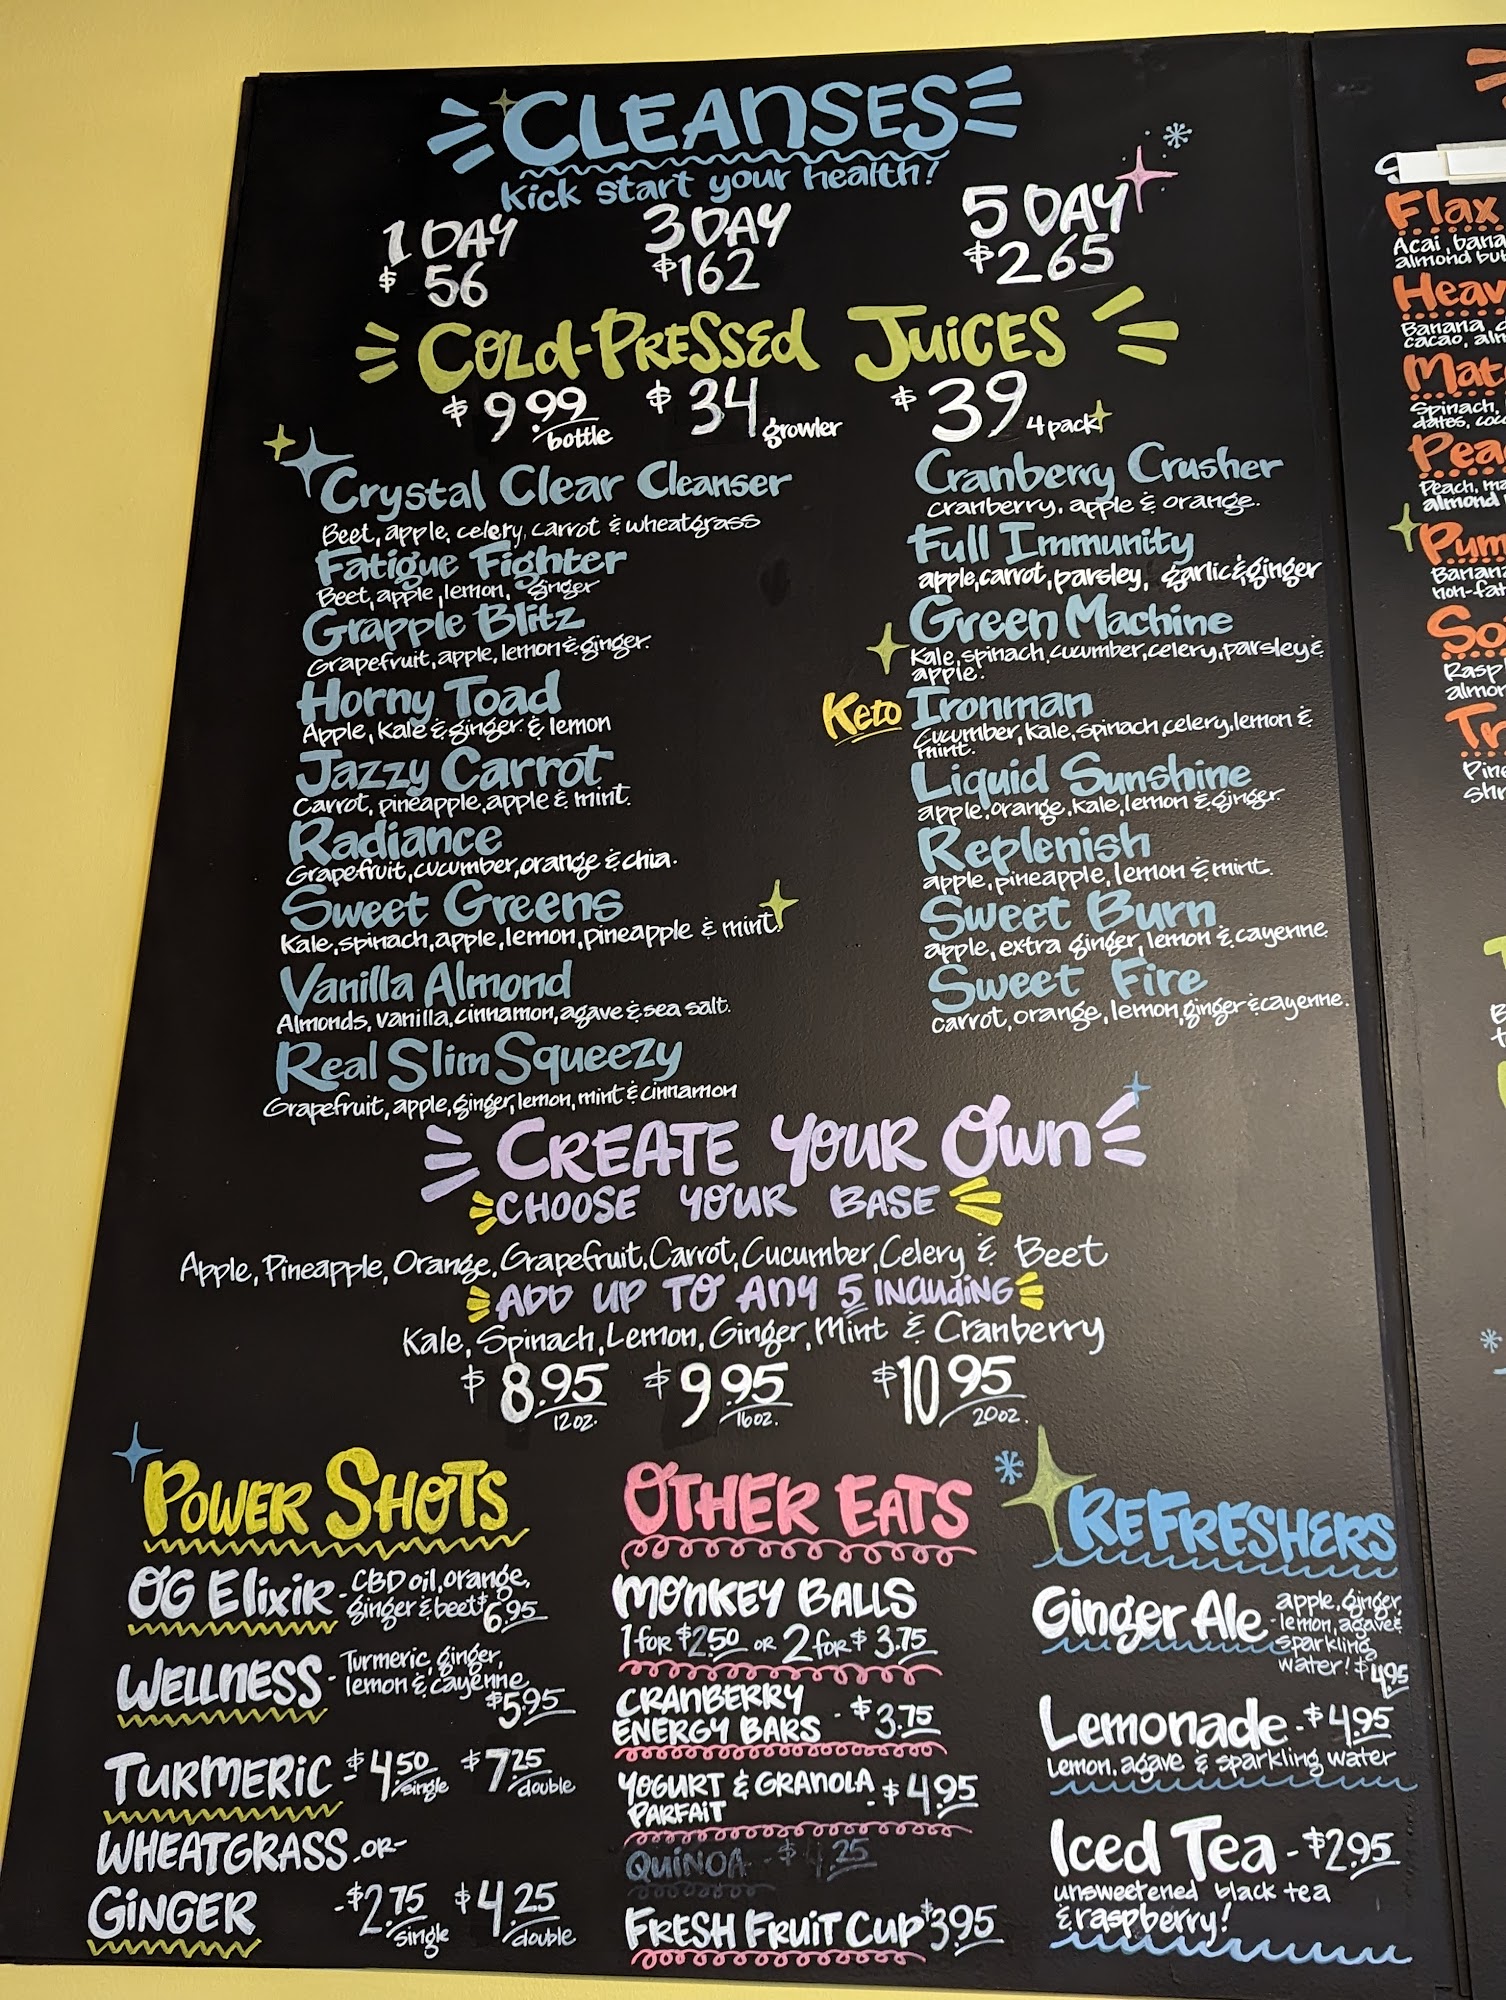 CLEANSES
Kick start your health!
1 DAY
$56
3 DAY
$162
5 DAY
$265
COLD-PRESSED JUICES
$9.99 bottle
$34 growler
$39 4 pack
Crystal Clear Cleanser
Beet, apple, celery, carrot & wheatgrass
Fatigue Fighter
Beet, apple, lemon, ginger
Grapple Blitz
Grapefruit, apple, lemon & ginger.
Horny Toad
Apple, Kale & ginger. & lemon
Jazzy Carrot
Carrot, pineapple, apple & mint.
Radiance
Grapefruit, cucumber, orange & chia.
Sweet Greens
Kale, spinach, apple, lemon, pineapple & mint.
Vanilla Almond
Almonds, vanilla, cinnamon, agave & sea salt.
Real Slim Squeezy
Grapefruit, apple, ginger, lemon, mint & cinnamon
Cranberry Crusher
cranberry, apple & orange.
Full Immunity
apple, carrot, parsley, garlic & ginger
Green Machine
Kale, spinach, cucumber, celery, parsley &
apple.
Keto Ironman
Cucumber, Kale, spinach, celery, lemon &
mint.
Liquid Sunshine
apple, orange, kale, lemon & ginger.
Replenish
apple, pineapple, lemon & mint.
Sweet Burn
apple, extra ginger, lemon & cayenne.
Sweet Fire
carrot, orange, lemon, ginger & cayenne.
CREATE YOUR OWN
CHOOSE YOUR BASE
Apple, Pineapple, Orange, Grapefruit, Carrot, Cucumber, Celery & Beet
ADD UP TO ANY 5 INCLUDING
Kale, Spinach, Lemon, Ginger, Mint & Cranberry
$8.95 12oz.
$9.95 16oz.
$10.95 20oz.
POWER SHOTS
OG Elixir - CBD oil, orange,
ginger & beet $6.95
WELLNESS - Turmeric, ginger,
lemon & cayenne
$5.95
TURMERIC - $4.50 single $7.25 double
WHEATGRASS -OR-
GINGER - $2.75 single $4.25 double
OTHER EATS
MONKEY BALLS
1 FOR $2.50 OR 2 FOR $3.75
CRANBERRY
ENERGY BARS - $3.75
YOGURT & GRANOLA
PARFAIT - $4.95
QUINOA - $4.25
FRESH FRUIT CUP $3.95
REFRESHERS
Ginger Ale - apple, ginger,
lemon, agave &
sparkling
water! $4.95
Lemonade - $4.95
Lemon, agave & sparkling water
Iced Tea - $2.95
unsweetened black tea
& raspberry!
Flax
Acai, bana
almond but
Heav
Banana,
cacao, alm
Mat
Spinach,
dates, coc
Pea
Peach, ma
almond
Pum
Banana
non-fat
So
Rasp
almon
Tr
Pine
shr